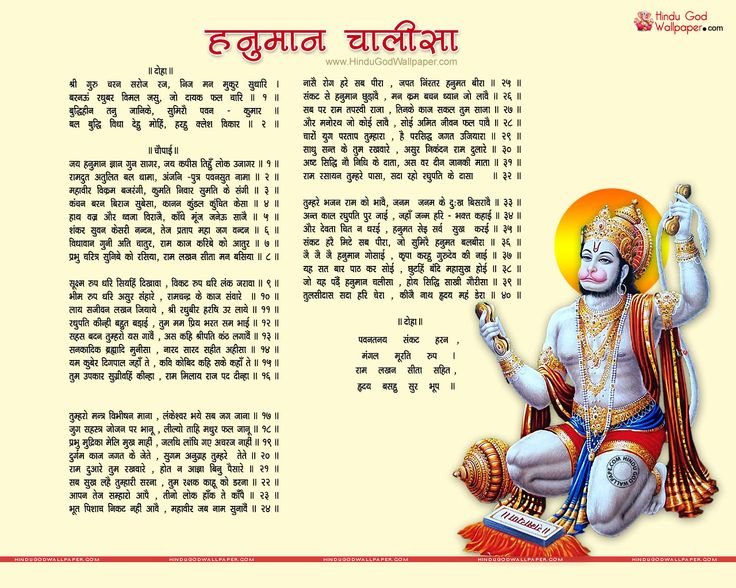 Hindu God
Wallpaper.com
हनुमान चालीसा
www.HinduGodWallpaper.com
॥ दोहा॥
श्री गुरु चरन सरोज रज, निज मन मुकुर सुधारि ।
बरनऊं रघुबर विमल जसु, जो दायक फल चारि ॥ १ ॥
बुद्धिहीन तनु जानिके, सुमिरौ पवन - कुमार ॥
बल बुद्धि विधा देहु मोहिं, हरहु क्लेश विकार ॥ २ ॥
॥ चौपाई॥
जय हनुमान ज्ञान गुन सागर, जय कपीस तिहुँ लोक उजागर ॥ १ ॥
रामदुत अतुलित बल धामा, अंजनि -पुत्र पवनसुत नामा ॥ २ ॥
महावीर विक्रम बजरंगी, कुमति निवार सुमति के संगी ॥ ३ ॥
कंचन बरन बिराज सुबेसा, कानन कुंडल कुंचित केसा ॥ ४ ॥
हाथ वज्र और ध्वजा विराजै, काँधे मूंज जनेऊ साजै ॥ ५ ॥
शंकर सुवन केसरी नन्दन, तेज प्रताप महा जग वन्दन ॥ ६ ॥
विधावान गुनी अति चातुर, राम काज करिबे को आतुर ॥ ७ ॥
प्रभु चरित्र सुनिबे को रसिया, राम लखन सीता मन बसिया ॥ ८ ॥
सूक्ष्म रुप धरि सियहिं दिखावा , विकट रुप धरि लंक जरावा ॥ ९ ॥
भीम रुप धरि असुर संहारे , रामचन्द्र के काज संवारे ॥ १० ॥
लाय सजीवन लखन जियाये , श्री रघुबीर हरषि उर लाये ॥ ११ ॥
रघुपति कीन्ही बहुत बड़ाई , तुम मम प्रिय भरत सम भाई ॥ १२ ॥
सहस बदन तुम्हरो यस गावैं , अस कहि श्रीपति कंठ लगावैं ॥ १३ ॥
सनकादिक ब्रह्मादि मुनीसा , नारद सारद सहीत अहीसा ॥ १४ ॥
यम कुबेर दिगपाल जहाँ ते , कवि कोबिद कहि सके कहाँ ते ॥ १५ ॥
तुम उपकार सुग्रीवहिं कीन्हा , राम मिलाय राज पद दीन्हा ॥ १६ ॥
तुम्हरो मन्त्र विभीषन माना , लंकेश्वर भये सब जग जाना ॥ १७ ॥
जुग सहस्त्र जोजन पर भानू , लील्यो ताहि मधुर फल जानू ॥ १८ ॥
प्रभु मुद्रिका मेलि मुख माहीं , जलधि लांघि गए अचरज नाहीं ॥ १९ ॥
दुर्गम काज जगत के जेते , सुगम अनुग्रह तुम्हरे तेते ॥ २० ॥
राम दुआरे तुम रखवारे , होत न आज्ञा बिनु पैसारे ॥ २१ ॥
सब सुख लहै तुम्हारी सरना , तुम रक्षक काहू को डरना ॥ २२ ॥
आपन तेज सम्हारो आपै , तीनो लोक हाँक ते काँपै ॥ २३ ॥
भूत पिशाच निकट नही आवै , महावीर जब नाम सुनावैं ॥ २४ ॥
नासै रोग हरे सब पीरा , जपत निंरतर हनुमत बीरा ॥ २५ ॥
संकट से हनुमान छुड़ावै , मन क्रम बचन ध्यान जो लावै ॥ २६ ॥
सब पर राम तपस्वी राजा , तिनके काज सकल तुम साजा ॥ २७ ॥
और मनोरथ जो कोई लावै , सोई अमित जीवन फल पावै ॥ २८ ॥
चारों युग परताप तुम्हारा , है परसिद्ध जगत उजियारा ॥ २९ ॥
साधु सन्त के तुम रखवारे , असुर निकंदन राम दुलारे ॥ ३० ॥
अष्ट सिद्धि नौ निधि के दाता, अस वर दीन जानकी माता ॥ ३१ ॥
राम रसायन तुम्हरे पासा, सदा रहो रघुपति के दासा ॥ ३२ ॥
तुम्हरे भजन राम को भावै, जनम जनम के दुःख बिसरावै ॥ ३३ ॥
अन्त काल रघुपति पुर जाई , जहाँ जन्म हरि - भक्त कहाई ॥ ३४ ॥
और देवता चित न धरई , हनुमत सेइ सर्व सुख करई ॥ ३५ ॥
संकट हरै मिटे सब पीरा, जो सुमिरैं हनुमत बलबीरा ॥ ३६ ॥
जै जै जै हनुमान गोसाई , कृपा करहु गुरुदेव की नाई ॥ ३७ ॥
यह सत बार पाठ कर सोई , छुटहिं बंदि महासुख होई ॥ ३८ ॥
जो यह पढ़ैं हनुमान चलीसा , होय सिद्धि साखी गौरीसा ॥ ३९ ॥
तुलसीदास सदा हरि चेरा , कीजै नाथ हृदय महं डेरा ॥ ४० ॥
॥ दोहा॥
पवनतनय संकट हरन ,
मंगल मूरति रुप ।
राम लखन सीता सहित ,
हृदय बसहु सुर भूप ॥
WWW.COM HINDU GOD WALLPAPER
HINDUGODWALLPAPER.COM HINDUGODWALLPAPER.COM HINDUGODWALLPAPER.COM HINDUGODWALLPAPER.COM HINDUGODWALLPAPER.COM